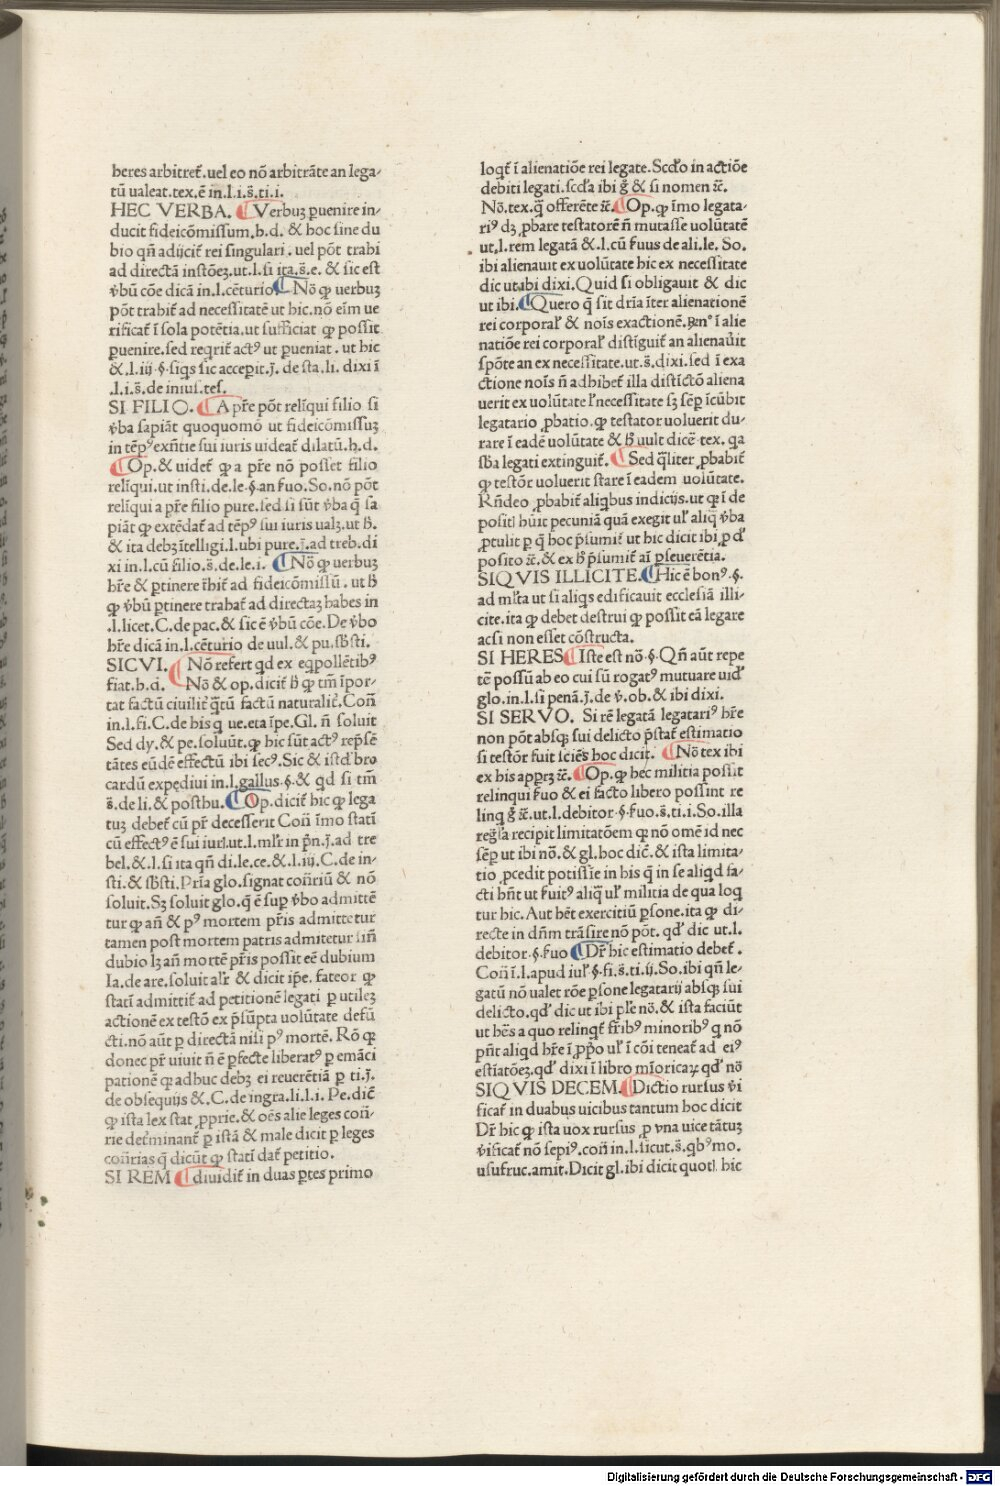 heres arbitret᷑.uel eo nō arbitrāte an lega-
tū ualeat.tex.ē in.l.i.s̄.ti.i.
HEC VERBA. ¶ Verbuꝫ puenire in-
ducit fideicōmissum.h.d. & hoc sine du
bio qn̄ adijcit᷑ rei singulari. uel pōt trahi
ad directā instōeꝫ.ut.l.si ita.s̄.e. & sic est
v̄bū cōe dicā in.l.cēturio ¶ Nō ꝙ uerbuꝫ
pōt trahit᷑ ad necessitatē ut hic.nō eīm ue
rificat᷑ ī sola potētia.ut sufficiat ꝙ possit
ꝑuenire.sed reqrit᷑ actꝰ ut ꝑueniat. ut hic
&.l.iij.§.siqs sic acceꝑit.j̄. de sta.li. dixi ī
.l.i.s̄.de inius.tes.
SI FILIO. ¶ A pr̄e pōt relīqui filio si
v̄ba sapiāt quoquomō ut fideicōmissuꝫ
in tēpꝰ exn̄tie sui iuris uideat᷑ dilatū.h.d.
¶ Op.& uidet᷑ ꝙ a pr̄e nō posset filio
relīqui.ut insti.de.le.§.an suo.So.nō pōt
relīqui a pr̄e filio pure.sed si sūt v̄ba q̄ sa
piāt ꝙ extēdat᷑ ad tēpꝰ sui iuris ualꝫ.ut h̄.
& ita debꝫ ītelligi.l.ubi pure.j̄.ad treb.di
xi in.l.cū filio.s̄.de.le.i. ¶ Nō ꝙ uerbuꝫ
hr̄e & ꝑtinere t̄hit᷑ ad fideicōmissū. ut h̄
ꝙ v̄bū ꝑtinere trahat᷑ ad directaꝫ habes in
.l.licet.C.de pac.& sic ē v̄bū cōe.De v̄bo
hr̄e dicā in.l.cēturio de uul.& pu.sb̄sti.
SICVI. ¶ Nō refert qd ex eq̄pollētibꝰ
fiat.h.d. ¶ Nō & op.dicit᷑ h̄ ꝙ tm̄ īpor-
tat factū ciuilit᷑ q̄tū factū naturalit᷑.Con̄
in.l.fi.C.de bis q ue.eta īpe.Gl. n̄ soluit
Sed dy.& pe.soluūt.ꝙ hic sūt actꝰ rep̄sē
tātes eūdē effectū ibi secꝰ.Sic & istd̄ bro
cardū expediui in.l.gallus.§.& qd si tm̄
s̄.de li.& postbu. ¶ Op.dicit᷑ hic ꝙ lega
tuꝫ debet᷑ cū pr̄ decesserit Con̄ īmo statī
cū effectꝰ ē sui iurl.ut.l.ml̄r in p̄n.j̄.ad tre
bel.&.l.si ita qn̄ di.le.ce.&.l.iij.C.de in-
sti.& sb̄sti.Pr̄ia glo.signat con̄riū & nō
soluit.Sꝫ soluit glo.q̄ ē suꝑ v̄bo admittē
tur ꝙ an̄ & pꝰ mortem pr̄is admittetur
tamen post mortem patris admitetur sin̄
dubio lꝫ an̄ mortē pr̄is possit eē dubium
Ia.de are.soluit al̄r & dicit īpe. fateor ꝙ
statī admittit᷑ ad petitionē legati ꝑ utileꝫ
actionē ex testō ex p̄sūpta uolūtate defū
cti.nō aūt ꝑ directā nisi pꝰ mortē. Rō ꝙ
donec pr̄ uiuit n̄ ē ꝑfecte liberatꝰ ꝑ emāci
pationē ꝙ adhuc debꝫ ei reuerētiā ꝑ ti.j̄.
de obsequijs &.C.de ingra.li.l.i. Pe.dic̄
ꝙ ista lex stat ꝓprie.& oēs alie leges con̄-
rie det᷑minant᷑ ꝑ istā & male dicit ꝑ leges
con̄rias q̄ dicūt ꝙ statī dat᷑ petitio.
SI REM ¶ diuidit᷑ in duas ꝑtes primo
loqt᷑ ī alienatiōe rei legate.Scd̄o in actiōe
debiti legati.scd̄a ibi g̊ & si nomen ⁊c̄.
Nō.tex.q̄ offerēte ⁊c̄. ¶ Op.ꝙ īmo legata-
riꝰ dꝫ ꝓbare testatorē n̄ mutasse uolūtatē
ut.l.rem legatā &.l.cū suus de ali.le. So.
ibi alienauit ex uolūtate hic ex necessitate
dic utabi dixi.Quid si obligauit & dic
ut ibi. ¶ Quero q̄ sit dr̄ia īter alienationē
rei corporal̄ & nōis exactionē.R̄nꝰ ī alie
natiōe rei corporal̄ distīguit᷑ an alienau̇it
spōte an ex necessitate.ut.s̄.dixi.sed ī exa
ctione nōis n̄ adhibet᷑ illa distīctō aliena
uerit ex uolūtate l̄ necessitate sꝫ sēꝑ īcūbit
legatario ꝓbatio.ꝙ testator uoluerit du-
rare ī eadē uolūtate & h̄ uult dicē tex. qa
sb̄a legati extinguit᷑. ¶ Sed q̄liter ꝓbabit᷑
ꝙ testōr uoluerit stare ī eadem uolūtate.
Rn̄deo ꝓbabit᷑ aliqbus indicijs.ut ꝙ ī de
positl būit pecuniā quā exegit ul̄ aliq̄ v̄ba
ꝓtulit ꝑ q̄ hoc p̄sumit᷑ ut hic dicit ibi ꝓ d̄
posito ⁊c̄.& ex h̄ p̄sumit᷑ aī ꝑseuerētia.
SIQVIS ILLICITE. ¶ Hic ē bonꝰ.§.
ad ml̄ta ut si aliqs edificauit ecclesiā illi-
cite.ita ꝙ debet destrui ꝙ possit eā legare
acsi non esset cōstructa.
SI HERES ¶ Iste est nō.§.Qn̄ aūt repe
tē possū ab eo cui sū rogatꝰ mutuare uid̄
glo.in.l.si penā.j̄.de v̄.ob.& ibi dixi.
SI SERVO. Si rē legatā legatariꝰ hr̄e
non pōt absqꝫ sui delicto p̄stat᷑ estimatio
si testōr fuit sciēs hoc dicit. ¶ Nō tex ibi
ex his apparꝫ ⁊c̄. ¶ Op.ꝙ hec militia possit
relinqui suo & ei facto libero possint re
linq g̊ ⁊c̄.ut.l.debitor.§.suo.s̄.ti.i.So.illa
regl̄a recipit limitatōem ꝙ nō omē id nec
sēꝑ ut ibi nō.& gl.hoc dic̄.& ista limita-
tio ꝓcedit potissīe in his q̄ in se aliqd fa-
cti hn̄t ut s̄uitꝰ aliq̄ ul̄ militia de qua loq
tur hic. Aut hēt exercitiū ꝑsone.ita ꝙ di-
recte in dn̄m trāsire nō pōt. qd̄ dic ut.l.
debitor.§.suo ¶ Dr̄ hic estimatio debet᷑.
Con̄ ī.l.apud iul̄.§.fi.s̄.ti.ij.So.ibi qn̄ le-
gatū nō ualet rōe ꝑsone legatarij absqꝫ sui
delicto.qd̄ dic ut ibi pl̄e nō.& ista faciūt
ut hēs a quo relinqt᷑ fr̄ibꝰ minoribꝰ q nō
pn̄t aliqd hr̄e ī ꝓp̄o ul̄ ī cōi teneat᷑ ad eiꝰ
estīatōeꝫ.qd̄ dixi ī libro mīoricaꝝ qd̄ nō
SIQVIS DECEM. ¶ Dictio rursus v̄i
ficat᷑ in duabus uicibus tantum hoc dicit
Dr̄ hic ꝙ ista uox rursus ꝑ vna uice tātuꝫ
v̄ificat᷑ nō sepiꝰ.con̄ in.l.sicut.s̄.qbꝰmo.
usufruc.amit.Dicit gl.ibi dicit quotl. hic
Digitalisierung gefördert durch die Deutsche Forschungsgemeinschaft - DFG